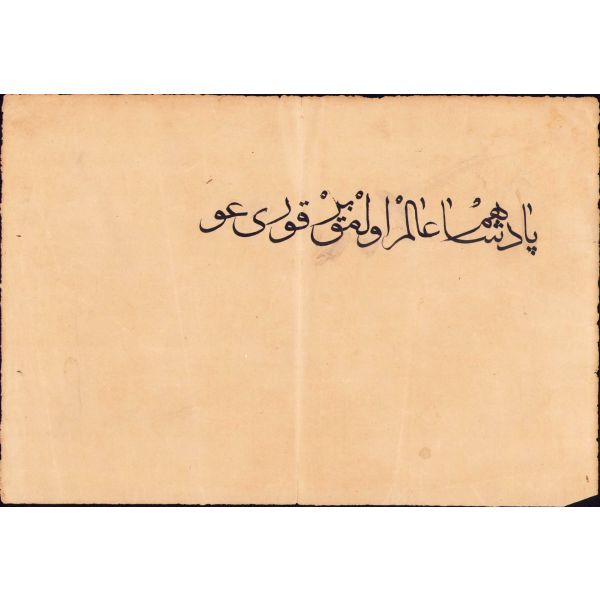 پادشاه عالم اولمق بر قوری عو